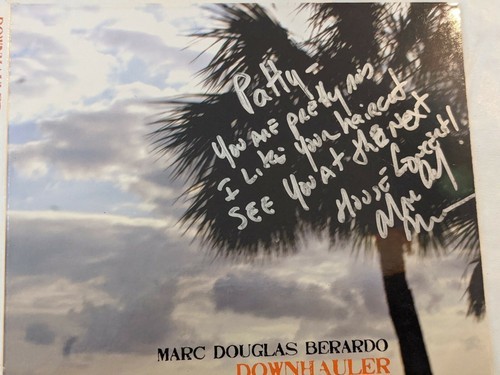 Patty-
YOU ARE PRETTY
I LIKE YOUR HAIRCUT
SEE YOU AT THE NEXT
HOUSE CONCERT!
MARC DOUGLAS BERARDO
DOWNHAULER